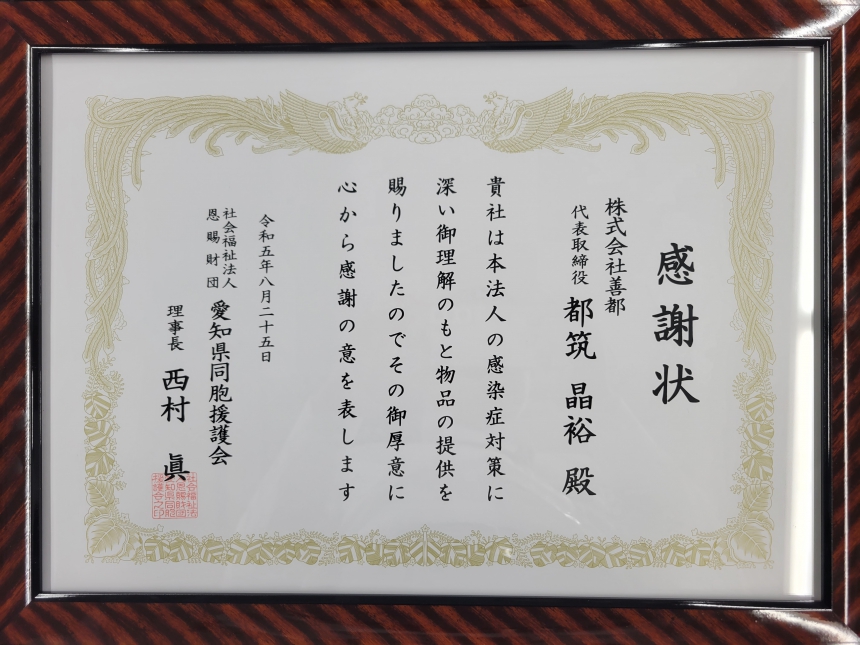 感謝状
株式会社善都
代表取締役 都筑 晶裕 殿
貴社は本法人の感染症対策に
深い御理解のもと物品の提供を
賜りましたのでその御厚意に
心から感謝の意を表します
令和五年八月二十五日
社会福祉法人
恩賜財団
愛知県同胞援護会
理事長 西村 眞
社会福祉法
人恩賜財団
愛知県同胞
援護会之印